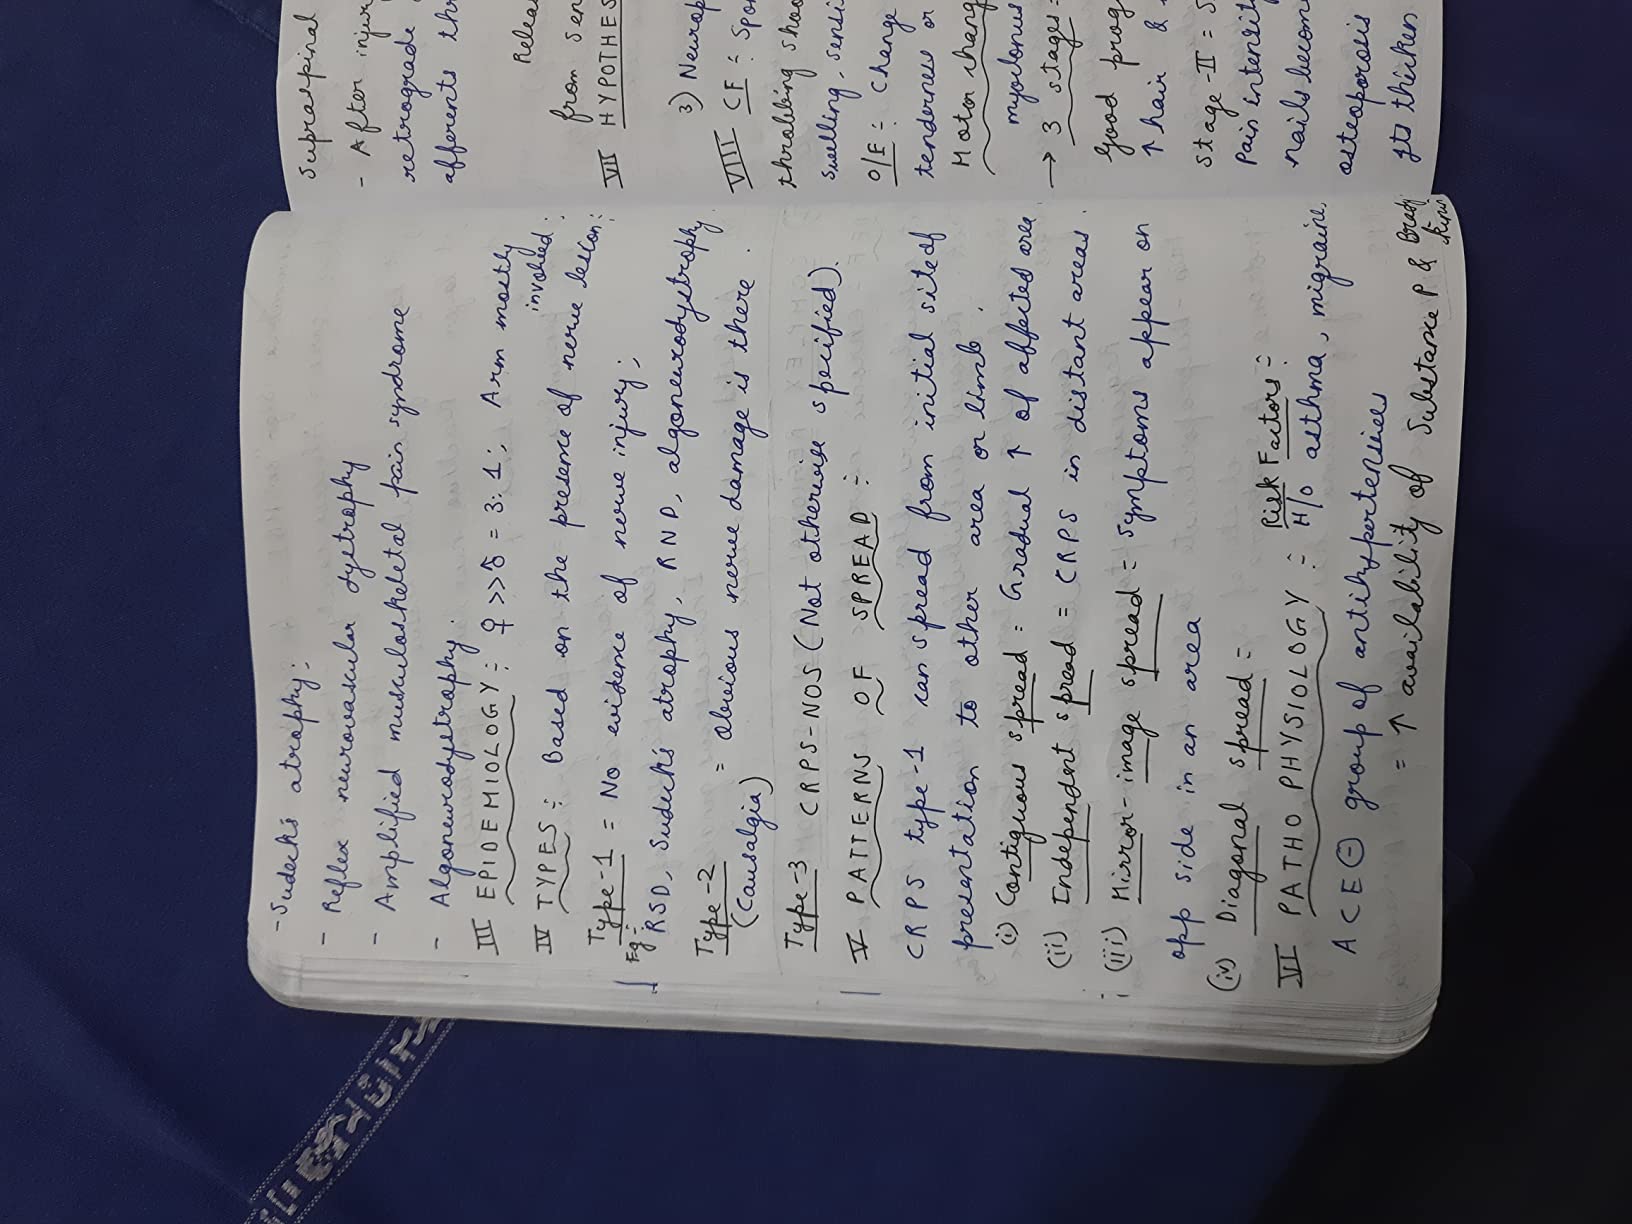 - Sudeck's atrophy:
- Reflex neurovascular dystrophy
- Amplified musculoskeletal pain syndrome
- Algoneurodystrophy.
III EPIDEMIOLOGY: ♀ >> ♂ = 3:1; Arm mostly involved;
IV TYPES: Based on the presence of nerve lesion:
Type-1 = No evidence of nerve injury;
Eg: RSD, Sudeck's atrophy, RND, algoneurodystrophy
Type-2 = obvious nerve damage is there.
(Causalgia)
Type-3 CRPS-NOS (Not otherwise specified).
V PATTERNS OF SPREAD:
CRPS type-1 can spread from initial site of
presentation to other area or limb.
(i) Contiguous spread = Gradual ↑ of affected area
(ii) Independent spread = CRPS in distant areas.
(iii) Mirror-image spread = Symptoms appear on
opp side in an area
(iv) Diagonal spread =
Risk Factors:
VI PATHOPHYSIOLOGY: H/o asthma, migraine,
ACE ⊖ group of antihypertensives
= ↑ availability of Substance P & Brady
kinin
Supraspinal
- After injur
retrograde
afferents thr
Relea
from sen
VII HYPOTHES
3) Neurop
VIII CF: Spo
throbbing shoo
swelling, sensi
O/E: Change
tenderness or
Motor chang
myoclonus
→ 3 stages:
Good prog
↑ hair &
Stage-II = S
Pain intensity
nails become
osteoporosis
Jts thicken